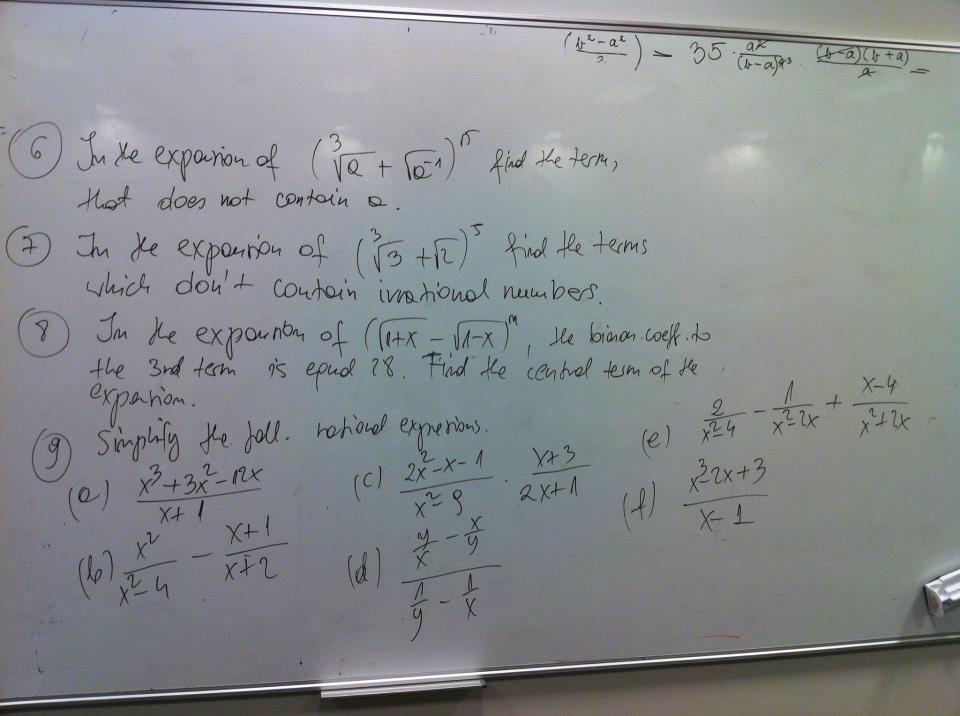 (b² − a² / 2) = 35 · a² / (b−a)a³ · (b−a)(b+a) / a =
(6) In the expansion of (³√a + √a⁻¹)¹⁵ find the term,
that does not contain a.
(7) In the expansion of (³√3 + √2)⁵ find the terms
which don't contain irrational numbers.
(8) In the expansion of (√1+x − √1−x)ⁿ, the binom. coeff. to
the 3rd term is equal 28. Find the central term of the
expansion.
(9) Simplify the foll. rational expressions.
(a) x³+3x²−12x / x+1
(b) x² / x²−4 − x+1 / x+2
(c) 2x²−x−1 / x²−9 · x+3 / 2x+1
(d) y/x − x/y / 1/y − 1/x
(e) 2 / x²−4 − 1 / x²−2x + x−4 / x²+2x
(f) x³−2x+3 / x−1